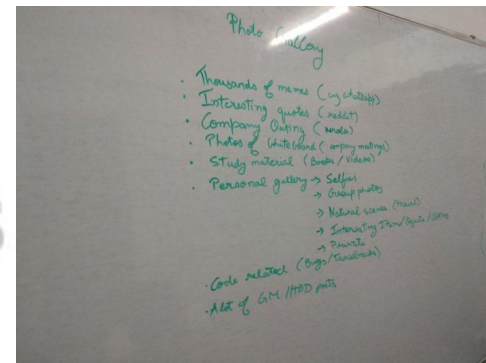 Photo Gallery
· Thousands of memes (eg whatsapp)
· Interesting quotes (reddit)
· Company Outing (kerala)
· Photos of Whiteboard (company meetings)
· Study material (Books / Videos)
· Personal gallery → Selfies
→ Group photos
→ Natural scenes (travel)
→ Interesting
→ Private
· Code related (Bugs/Tracebacks)
· A lot of GM /HBD posts